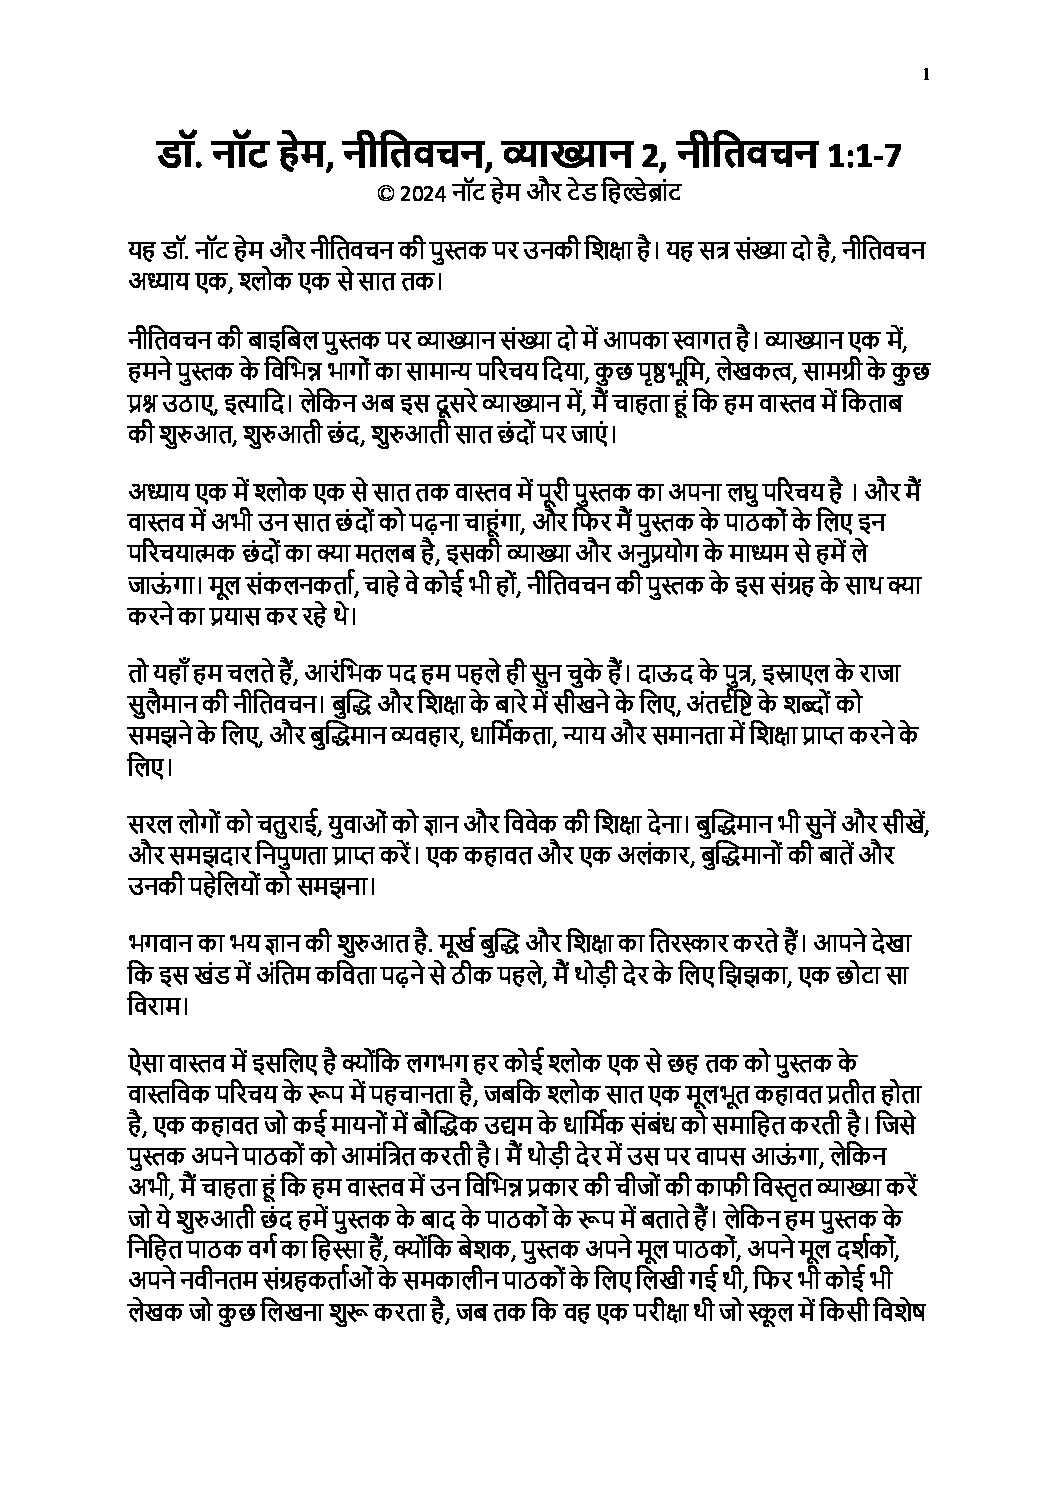 1
डॉ. नॉट हेम, नीतिवचन, व्याख्यान 2, नीतिवचन 1:1-7
© 2024 नॉट हेम और टेड हिल्डेब्रांट
यह डॉ. नॉट हेम और नीतिवचन की पुस्तक पर उनकी शिक्षा है। यह सत्र संख्या दो है, नीतिवचन
अध्याय एक, श्लोक एक से सात तक।
नीतिवचन की बाइबिल पुस्तक पर व्याख्यान संख्या दो में आपका स्वागत है। व्याख्यान एक में,
हमने पुस्तक के विभिन्न भागों का सामान्य परिचय दिया, कुछ पृष्ठभूमि, लेखकत्व, सामग्री के कुछ
प्रश्न उठाए, इत्यादि। लेकिन अब इस दूसरे व्याख्यान में, मैं चाहता हूं कि हम वास्तव में किताब
की शुरुआत, शुरुआती छंद, शुरुआती सात छंदों पर जाएं।
अध्याय एक में श्लोक एक से सात तक वास्तव में पूरी पुस्तक का अपना लघु परिचय है । और मैं
वास्तव में अभी उन सात छंदों को पढ़ना चाहूंगा, और फिर मैं पुस्तक के पाठकों के लिए इन
परिचयात्मक छंदों का क्या मतलब है, इसकी व्याख्या और अनुप्रयोग के माध्यम से हमें ले
जाऊंगा। मूल संकलनकर्ता, चाहे वे कोई भी हों, नीतिवचन की पुस्तक के इस संग्रह के साथ क्या
करने का प्रयास कर रहे थे।
तो यहाँ हम चलते हैं, आरंभिक पद हम पहले ही सुन चुके हैं। दाऊद के पुत्र, इस्राएल के राजा
सुलैमान की नीतिवचन। बुद्धि और शिक्षा के बारे में सीखने के लिए, अंतर्दृष्टि के शब्दों को
समझने के लिए, और बुद्धिमान व्यवहार, धार्मिकता, न्याय और समानता में शिक्षा प्राप्त करने के
लिए।
सरल लोगों को चतुराई, युवाओं को ज्ञान और विवेक की शिक्षा देना। बुद्धिमान भी सुनें और सीखें,
और समझदार निपुणता प्राप्त करें। एक कहावत और एक अलंकार, बुद्धिमानों की बातें और
उनकी पहेलियों को समझना।
भगवान का भय ज्ञान की शुरुआत है. मूर्ख बुद्धि और शिक्षा का तिरस्कार करते हैं। आपने देखा
कि इस खंड में अंतिम कविता पढ़ने से ठीक पहले, मैं थोड़ी देर के लिए झिझका, एक छोटा सा
विराम।
ऐसा वास्तव में इसलिए है क्योंकि लगभग हर कोई श्लोक एक से छह तक को पुस्तक के
वास्तविक परिचय के रूप में पहचानता है, जबकि श्लोक सात एक मूलभूत कहावत प्रतीत होता
है, एक कहावत जो कई मायनों में बौद्धिक उद्यम के धार्मिक संबंध को समाहित करती है। जिसे
पुस्तक अपने पाठकों को आमंत्रित करती है। मैं थोड़ी देर में उस पर वापस आऊंगा, लेकिन
अभी, मैं चाहता हूं कि हम वास्तव में उन विभिन्न प्रकार की चीजों की काफी विस्तृत व्याख्या करें
जो ये शुरुआती छंद हमें पुस्तक के बाद के पाठकों के रूप में बताते हैं। लेकिन हम पुस्तक के
निहित पाठक वर्ग का हिस्सा हैं, क्योंकि बेशक, पुस्तक अपने मूल पाठकों, अपने मूल दर्शकों,
अपने नवीनतम संग्रहकर्ताओं के समकालीन पाठकों के लिए लिखी गई थी, फिर भी कोई भी
लेखक जो कुछ लिखना शुरू करता है, जब तक कि वह एक परीक्षा थी जो स्कूल में किसी विशेष